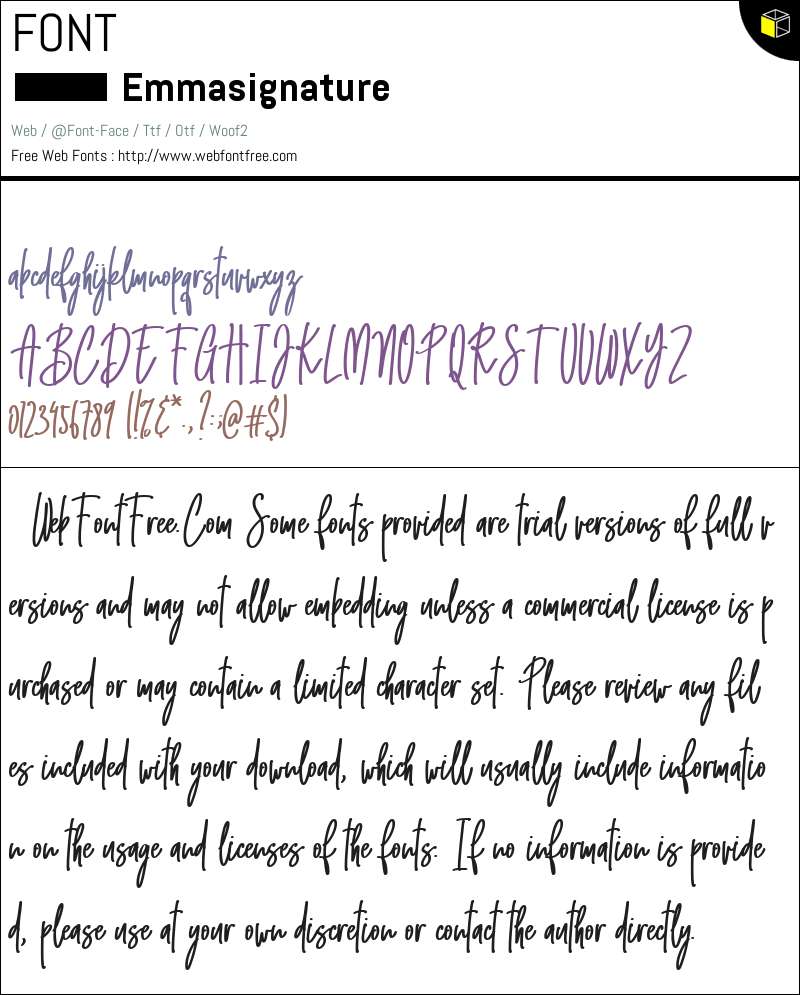 FONT
Emmasignature
Web / @Font-Face / Ttf / Otf / Woof2
Free Web Fonts : http://www.webfontfree.com
abcdefghijklmnopqrstuvwxyz
ABCDEFGHIJKLMNOPQRSTUVWXYZ
0123456789 (!%&*.,?:;@#$)
WebFontFree.Com Some fonts provided are trial versions of full v
ersions and may not allow embedding unless a commercial license is p
urchased or may contain a limited character set. Please review any fil
es included with your download, which will usually include informatio
n on the usage and licenses of the fonts. If no information is provide
d, please use at your own discretion or contact the author directly.